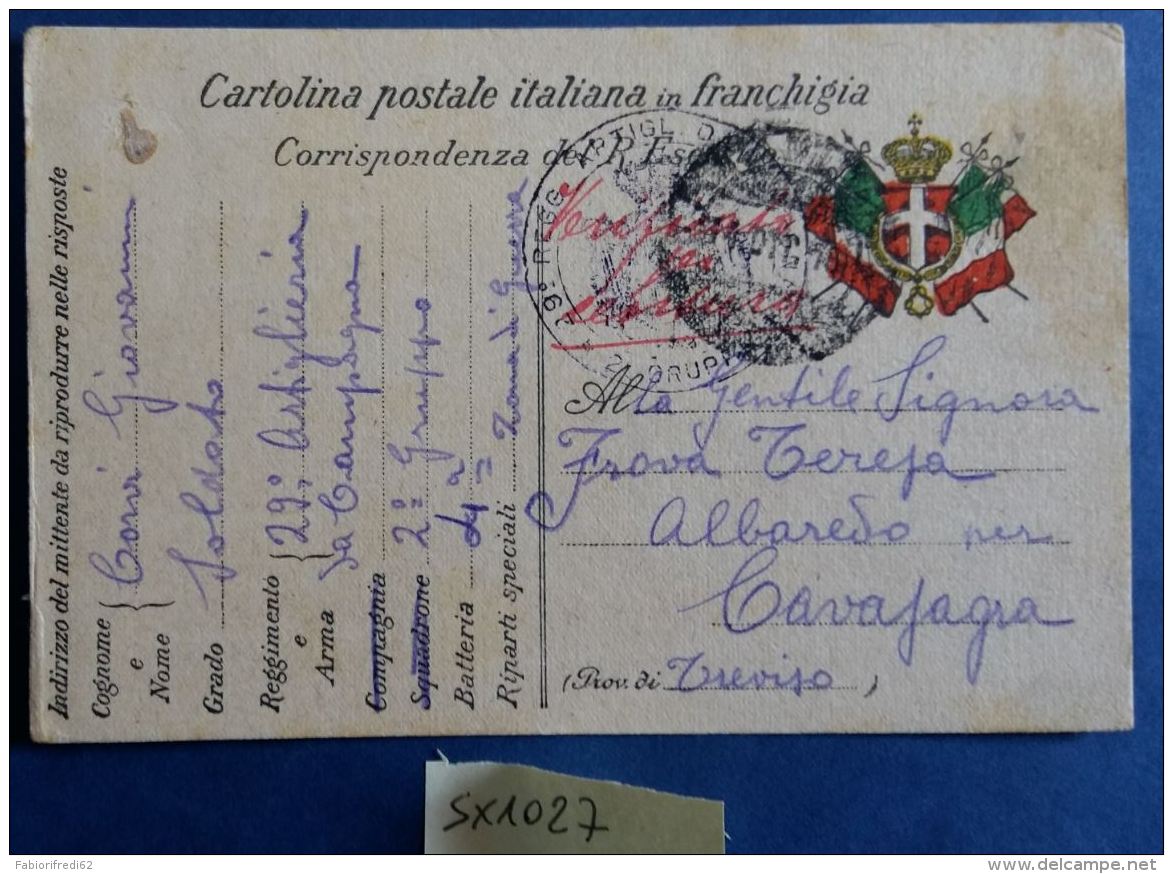 Cartolina postale italiana in franchigia
Corrispondenza del R. Es
29° REGG. ARTIGL. D
2° GRUPP
Verificato
per
censura
Alla Gentile Signora
Frova Teresa
Albaredo per
Cavasagra
(Prov. di Treviso)
Indirizzo del mittente da riprodurre nelle risposte
Cognome e Nome { Giovanni
Grado Soldato
Reggimento e Arma { 29°, Artiglieria
da Campagna
Compagnia
Squadrone 2° Gruppo
Batteria 4a
Riparti speciali Zona di guerra
SX1027
Fabiorifredi62
www.delcampe.net